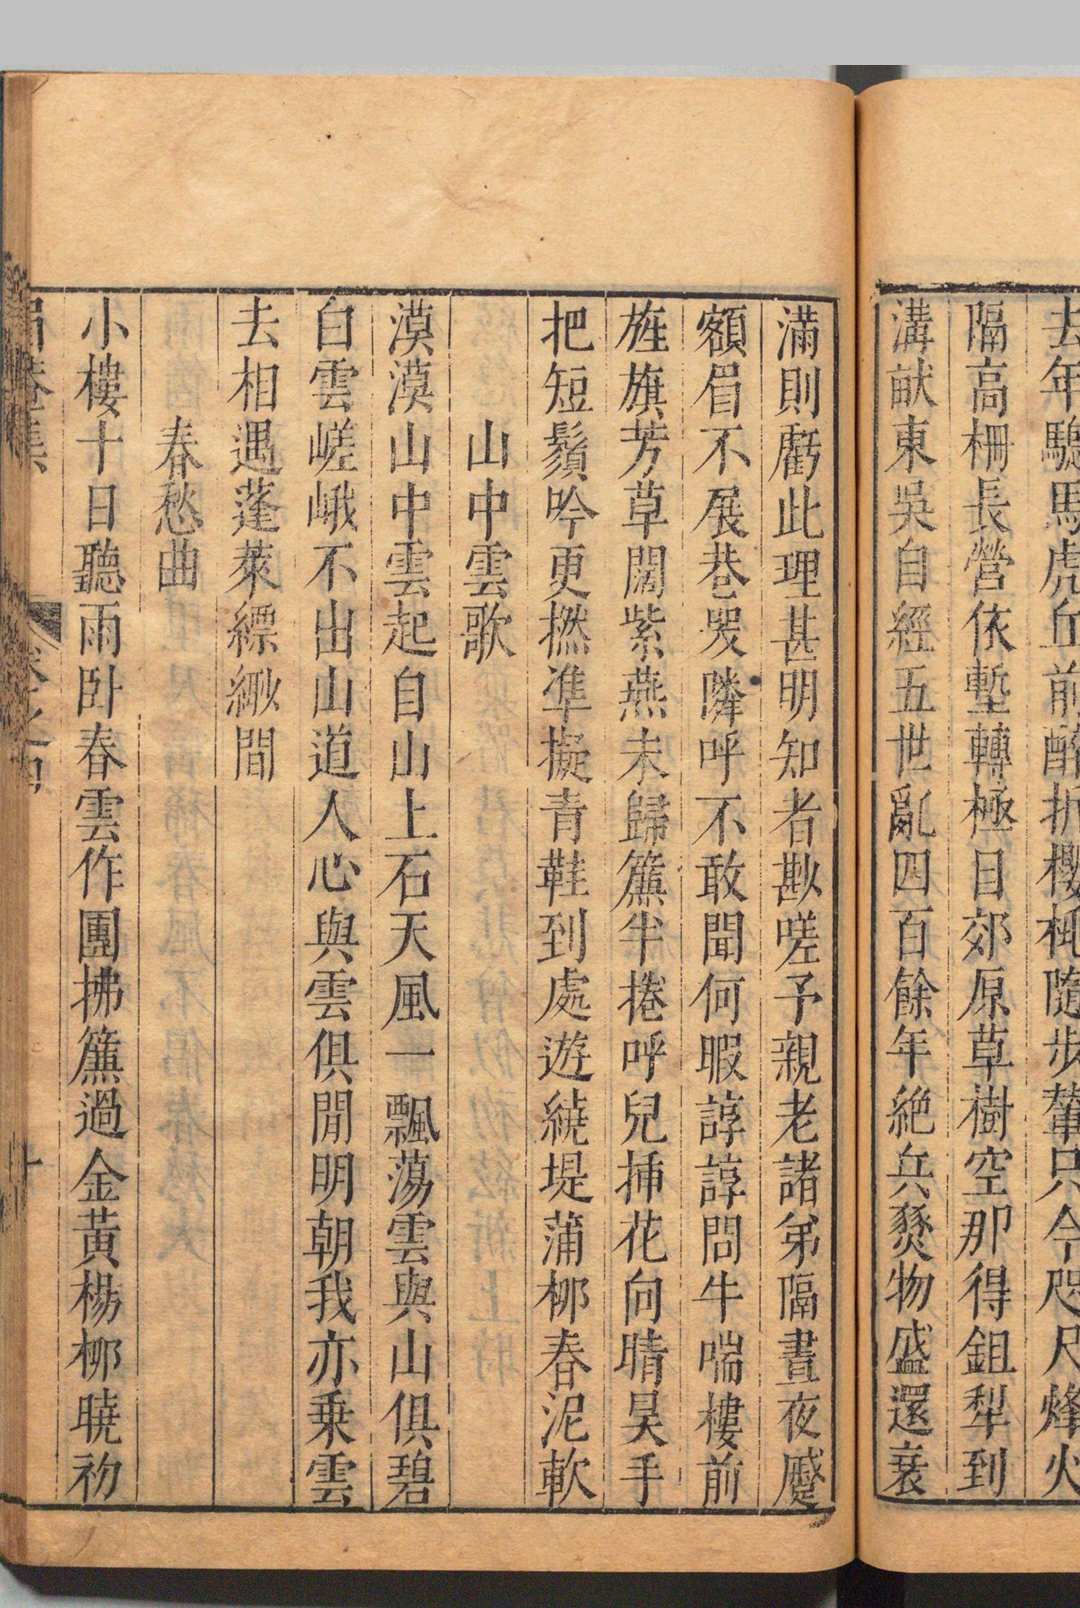 去年驄馬虎丘前醉折櫻桃隨步輦只今咫尺烽火
隔高柵長營依塹轉極目郊原草樹空那得鉏犁到
溝畎東吳自經五世亂四百餘年絶兵燹物盛還衰
滿則虧此理甚明知者尠嗟予親老諸弟隔晝夜蹙
額眉不展巷哭隣呼不敢聞何暇諄諄問牛喘樓前
旌旗芳草闊紫燕未歸簾半捲呼兒揷花向晴昊手
把短鬚吟更撚準擬青鞋到處遊繞堤蒲柳春泥軟
山中雲歌
漠漠山中雲起自山上石天風一飄蕩雲與山俱碧
白雲嵯峨不出山道人心與雲俱閒明朝我亦乗雲
去相遇蓬萊縹緲間
春愁曲
小樓十日聽雨卧春雲作團拂簾過金黃楊柳曉初
卷之四